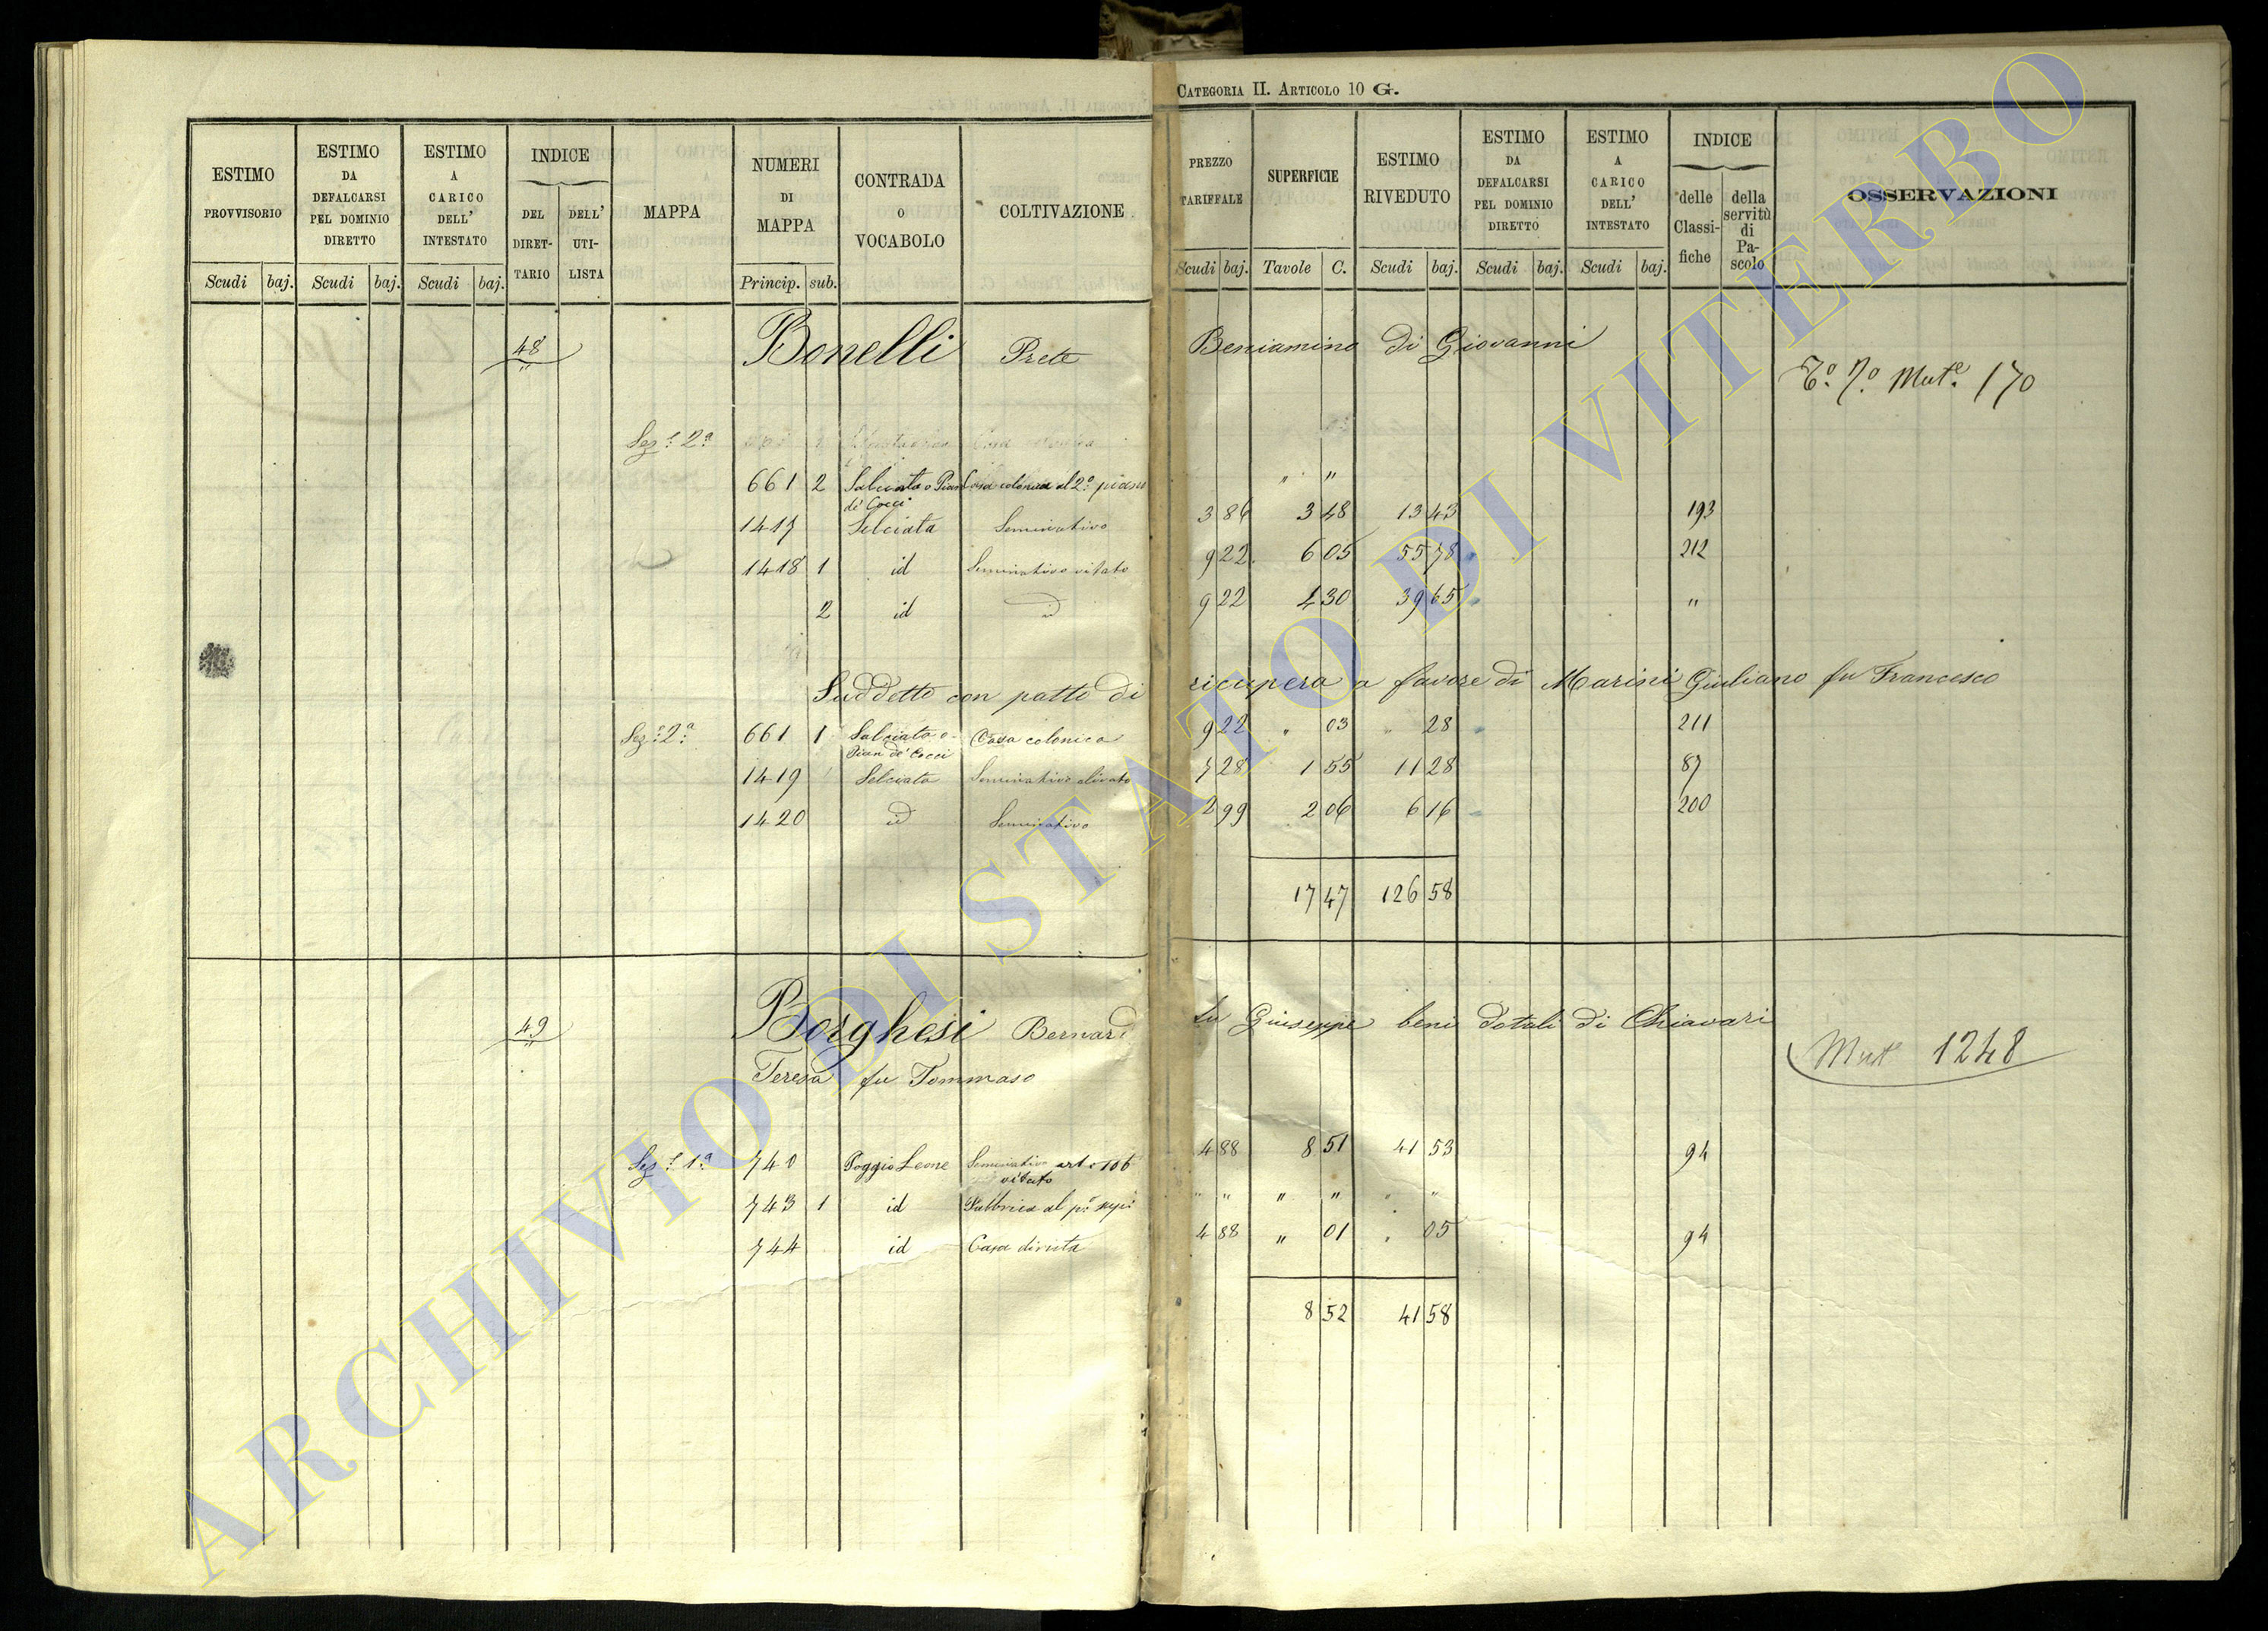 CATEGORIA II. ARTICOLO 10 G.
ESTIMO PROVVISORIO Scudi baj.
ESTIMO DA DEFALCARSI PEL DOMINIO DIRETTO Scudi baj.
ESTIMO A CARICO DELL' INTESTATO Scudi baj.
INDICE DEL DIRET-TARIO DELL' UTI-LISTA
MAPPA
NUMERI DI MAPPA Princip. sub.
CONTRADA O VOCABOLO
COLTIVAZIONE
PREZZO TARIFFALE Scudi baj.
SUPERFICIE Tavole C.
ESTIMO RIVEDUTO Scudi baj.
ESTIMO DA DEFALCARSI PEL DOMINIO DIRETTO Scudi baj.
ESTIMO A CARICO DELL' INTESTATO Scudi baj.
INDICE delle Classi-fiche della servitù di Pa-scolo
OSSERVAZIONI
48 Bonelli Prete Beniamino di Giovanni
Mut.e 170
Sez.e 2.a
661 2 Salciata o Pian de' Cocci Casa colonica al 2.o piano " "
1417 Selciata Seminativo 3 86 3 48 13 43 193
1418 1 id Seminativo vitato 9 22 6 05 55 78 212
2 id id 9 22 4 30 39 65 "
Suddetto con patto di ricupera a favore di Marini Giuliano fu Francesco
Sez.e 2.a 661 1 Salciata o Pian de' Cocci Casa colonica 9 22 " 03 " 28 211
1419 Selciata Seminativo olivato 7 28 1 55 11 28 87
1420 id Seminativo 2 99 2 06 6 16 200
17 47 126 58
49 Borghesi Bernard fu Giuseppe beni dotali di Chiavari
Teresa fu Tommaso
Mut 1248
Sez.e 1.a 740 Poggio Leone Seminativo vitato 4 88 8 51 41 53 94
743 1 id Fabbrica al p.o " " " " " "
744 id Casa diruta 4 88 " 01 " 05 94
8 52 41 58
ARCHIVIO DI STATO DI VITERBO